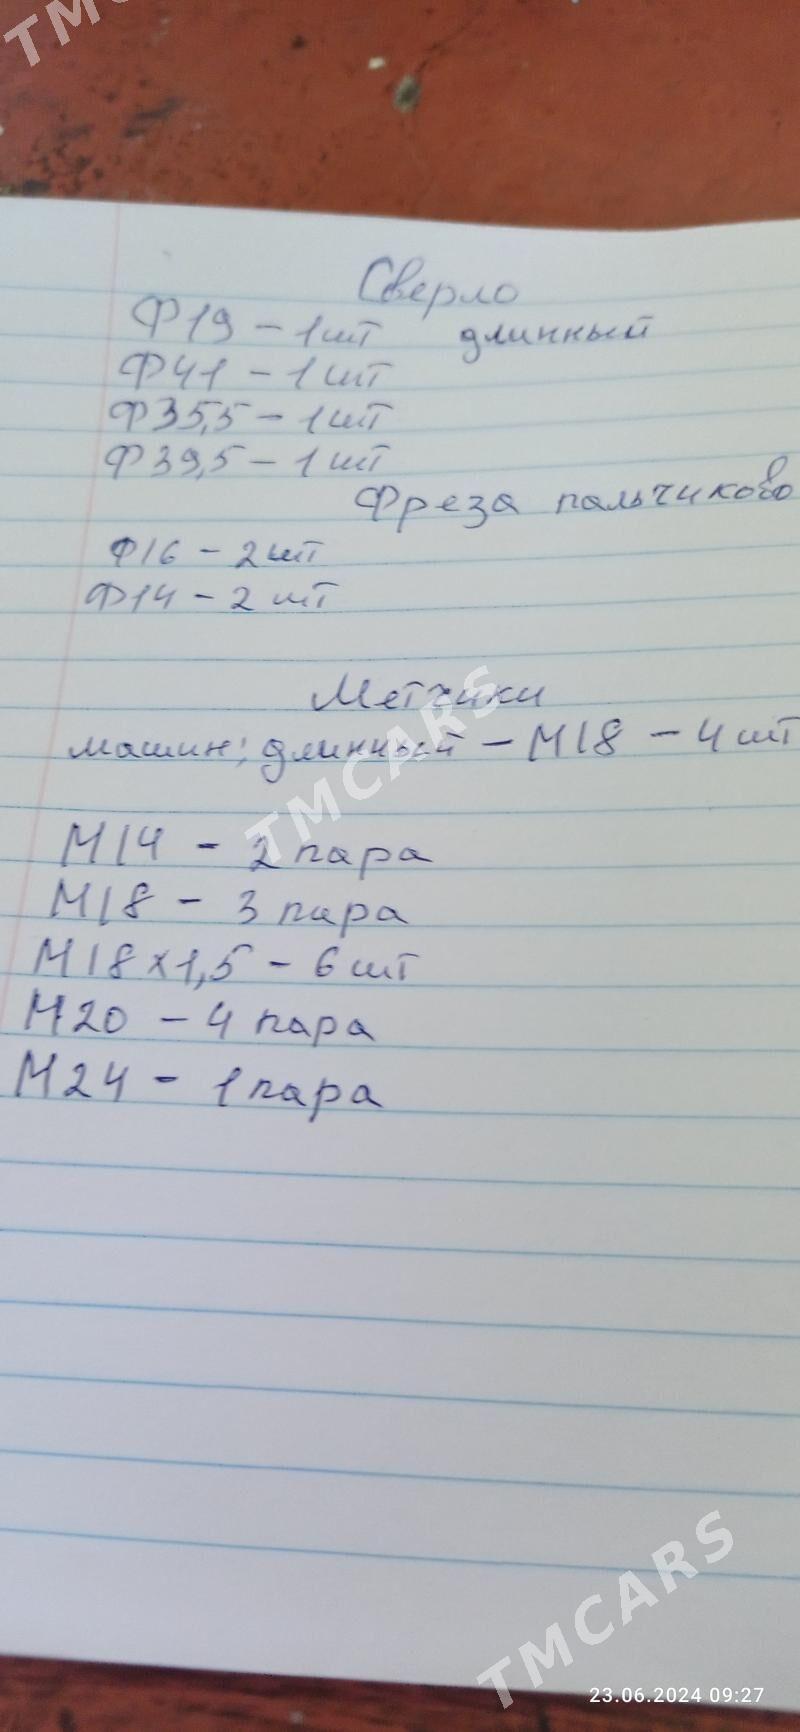 TMCARS
Сверло
Ф19 – 1шт длинный
Ф41 – 1шт
Ф35,5 – 1шт
Ф39,5 – 1шт
Фреза пальчиково
Ф16 – 2шт
Ф14 – 2шт
Метчики
машин; длинный – М18 – 4шт
TMCARS
М14 – 2 пара
М18 – 3 пара
М18х1,5 – 6шт
М20 – 4 пара
М24 – 1 пара
TMCARS
23.06.2024 09:27